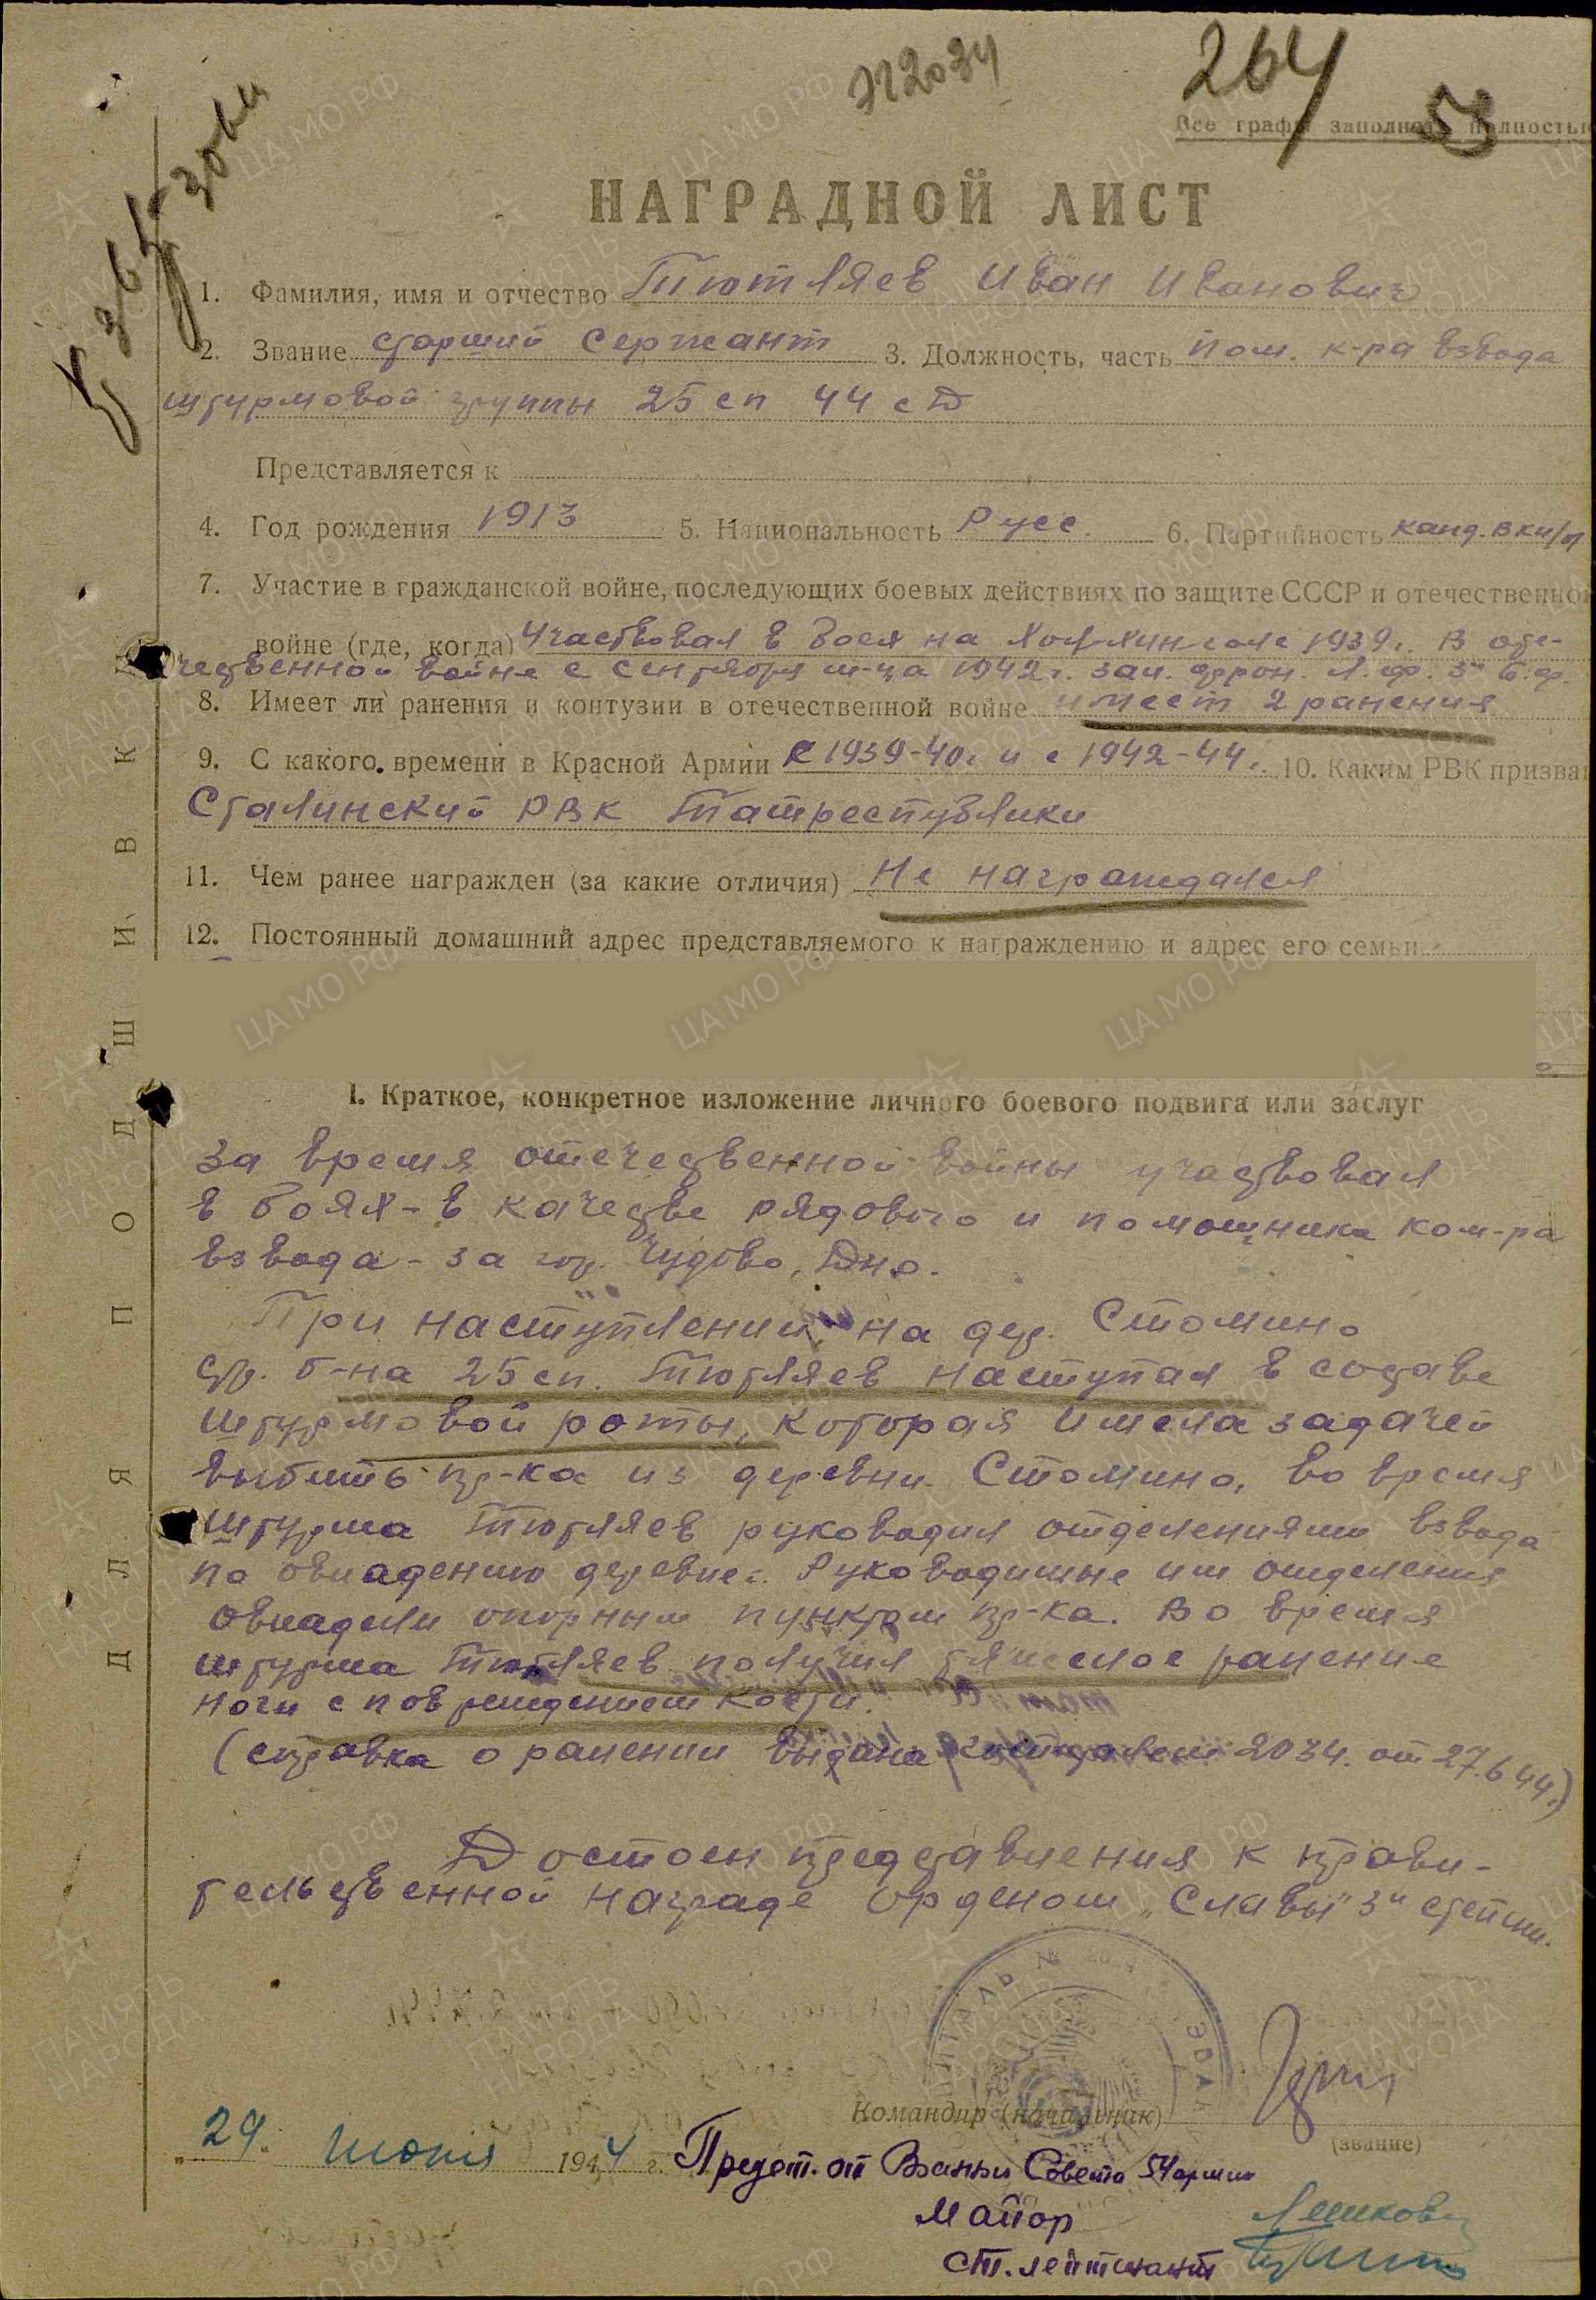 эг 2034
264
53
Все графы заполнять полностью
НАГРАДНОЙ ЛИСТ
1. Фамилия, имя и отчество Тютляев Иван Иванович
2. Звание старший сержант 3. Должность, часть пом. к-ра взвода
штурмовой группы 25 сп 44 сд
Представляется к
4. Год рождения 1913 5. Национальность Русс. 6. Партийность канд. ВКП/б
7. Участие в гражданской войне, последующих боевых действиях по защите СССР и отечественной
войне (где, когда) Участвовал в боях на Холхинголе 1939 г. В оте-
чественной войне с сентября м-ца 1942 г. фрон. Л. ф. 3й б. ф.
8. Имеет ли ранения и контузии в отечественной войне имеет 2 ранения
9. С какого времени в Красной Армии с 1939-40 г. и с 1942-44 г. 10. Каким РВК призван
Сталинский РВК Татреспублики
11. Чем ранее награжден (за какие отличия) Не награждался
12. Постоянный домашний адрес представляемого к награждению и адрес его семьи
I. Краткое, конкретное изложение личного боевого подвига или заслуг
За время отечественной войны участвовал
в боях - в качестве рядового и помощника ком-ра
взвода - за гор. Чудово, Дно.
При наступлении на дер. Стомино
стр. б-на 25 сп. Тютляев наступал в составе
штурмовой роты, которая имела задачей
выбить пр-ка из деревни Стомино, во время
штурма Тютляев руководил отделениями взвода
по овладению деревней. Руководимые им отделения
овладели опорным пунктом пр-ка. Во время
штурма Тютляев получил тяжелое ранение
ноги с повреждением кости.
(справка о ранении выдана госпиталем 2034 от 27.6.44.)
Достоин представления к прави-
тельственной награде орденом „Славы" 3й степени.
Командир (начальник)
(звание)
„29" июня 1944 г. Предст. от Воен. Совета 54 армии
Майор
Ст. лейтенант
ДЛЯ ПОДШИВКИ
ЦА МО РФ
ПАМЯТЬ НАРОДА